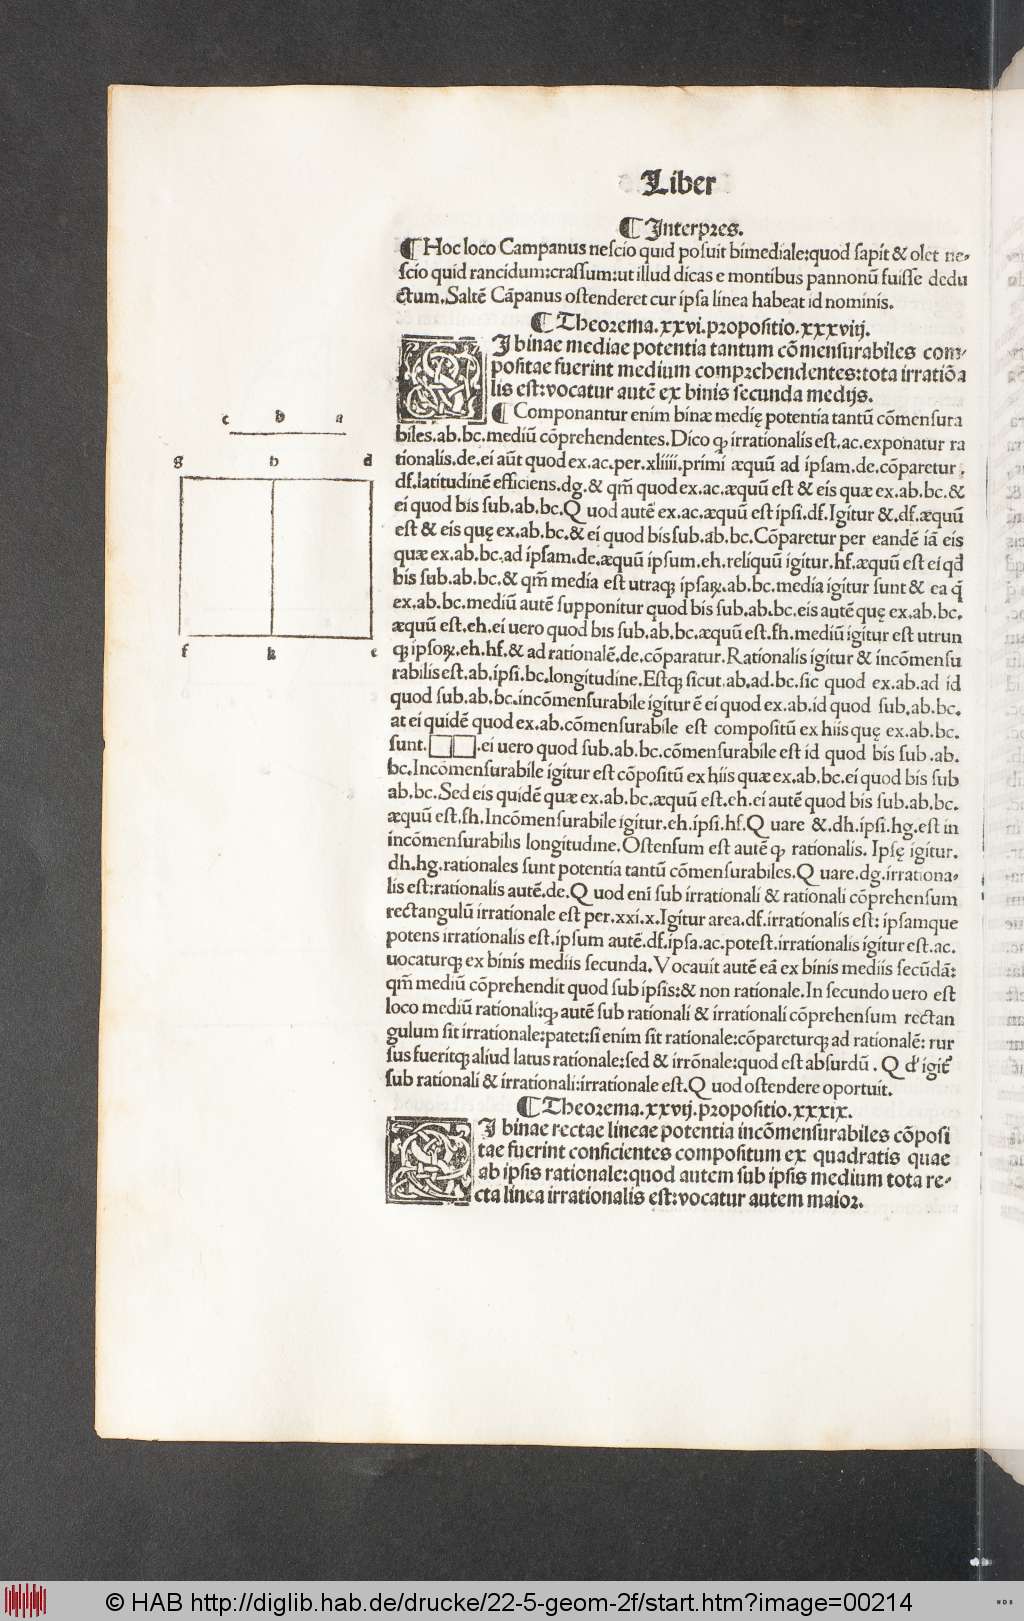 Liber
¶ Interpres.
¶ Hoc loco Campanus nescio quid posuit bimediale:quod sapit & olet ne-
scio quid rancidum:crassum:ut illud dicas e montibus pannonũ fuisse dedu
ctum.Saltẽ Cãpanus ostenderet cur ipsa linea habeat id nominis.
¶ Theorema.xxvi.propositio.xxxviij.
SI binae mediae potentia tantum cõmensurabiles com-
positae fuerint medium comprehendentes:tota irratiõa
lis est:vocatur autẽ ex binis secunda medijs.
¶ Componantur enim binæ medię potentia tantũ cõmensura
biles.ab.bc.mediũ cõprehendentes.Dico ꝙ irrationalis est.ac.exponatur ra
tionalis.de.ei aũt quod ex.ac.per.xliiii.primi æquũ ad ipsam.de.cõparetur.
df.latitudinẽ efficiens.dg.& qm̃ quod ex.ac.æquũ est & eis quæ ex.ab.bc.&
ei quod bis sub.ab.bc.Quod autẽ ex.ac.æquũ est ipsi.df.Igitur &.df.æquũ
est & eis quę ex.ab.bc.& ei quod bis sub.ab.bc.Cõparetur per eandẽ iã eis
quæ ex.ab.bc.ad ipsam.de.æquũ ipsum.eh.reliquũ igitur.hf.æquũ est ei qd
bis sub.ab.bc.& qm̃ media est utraqꝫ ipsaꝝ.ab.bc.media igitur sunt & ea q̃
ex.ab.bc.mediũ autẽ supponitur quod bis sub.ab.bc.eis autẽ quę ex.ab.bc.
æquũ est.eh.ei uero quod bis sub.ab.bc.æquũ est.fh.mediũ igitur est utrun
qꝫ ipsoꝝ.eh.hf.& ad rationalẽ.de.cõparatur.Rationalis igitur & incõmensu
rabilis est.ab.ipsi.bc.longitudine.Estqꝫ sicut.ab.ad.bc.sic quod ex.ab.ad id
quod sub.ab.bc.incõmensurabile igitur ẽ ei quod ex.ab.id quod sub.ab.bc.
at ei quidẽ quod ex.ab.cõmensurabile est compositũ ex hiis quę ex.ab.bc.
sunt.□□.ei uero quod sub.ab.bc.cõmensurabile est id quod bis sub.ab.
bc.Incõmensurabile igitur est cõpositũ ex hiis quæ ex.ab.bc.ei quod bis sub
ab.bc.Sed eis quidẽ quæ ex.ab.bc.æquũ est.eh.ei autẽ quod bis sub.ab.bc.
æquũ est.fh.Incõmensurabile igitur.eh.ipsi.hf.Quare &.dh.ipsi.hg.est in
incõmensurabilis longitudine.Ostensum est autẽ ꝙ rationalis. Ipsę igitur.
dh.hg.rationales sunt potentia tantũ cõmensurabiles.Quare.dg.irrationa-
lis est:rationalis autẽ.de.Quod enĩ sub irrationali & rationali cõprehensum
rectangulũ irrationale est per.xxi.x.Igitur area.df.irrationalis est: ipsamque
potens irrationalis est.ipsum autẽ.df.ipsa.ac.potest.irrationalis igitur est.ac.
uocaturqꝫ ex binis mediis secunda.Vocauit autẽ eã ex binis mediis secũdã:
qm̃ mediũ cõprehendit quod sub ipsis:& non rationale.In secundo uero est
loco mediũ rationali:ꝙ autẽ sub rationali & irrationali cõprehensum rectan
gulum sit irrationale:patet:si enim sit rationale:cõpareturqꝫ ad rationalẽ: rur
sus fueritqꝫ aliud latus rationale:sed & irrõnale:quod est absurdũ. Qd' igit̃
sub rationali & irrationali:irrationale est.Quod ostendere oportuit.
¶ Theorema.xxvij.propositio.xxxix.
SI binae rectae lineae potentia incõmensurabiles cõposi
tae fuerint conficientes compositum ex quadratis quae
ab ipsis rationale:quod autem sub ipsis medium tota re-
cta linea irrationalis est:vocatur autem maior.
c b a
g h d
f k e
© HAB http://diglib.hab.de/drucke/22-5-geom-2f/start.htm?image=00214